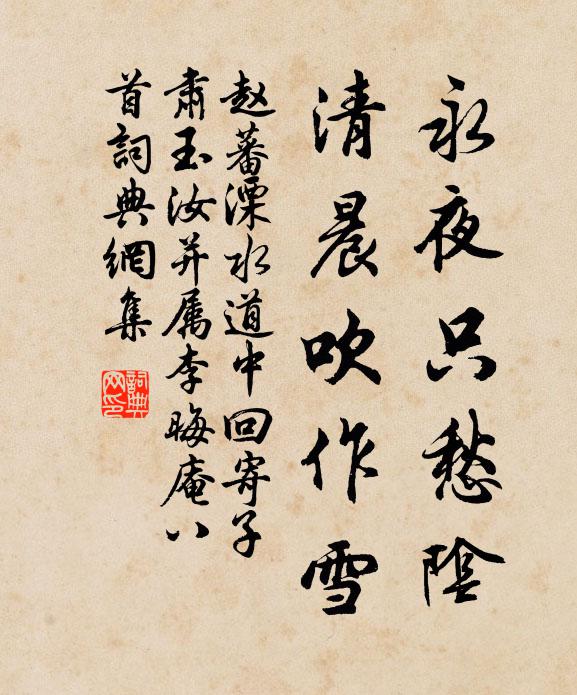 永夜只愁陰
清晨吹作雪
赵蕃溧水道中回寄子
肅玉汝并属李晦庵八
首詞典網集
詞典
网印